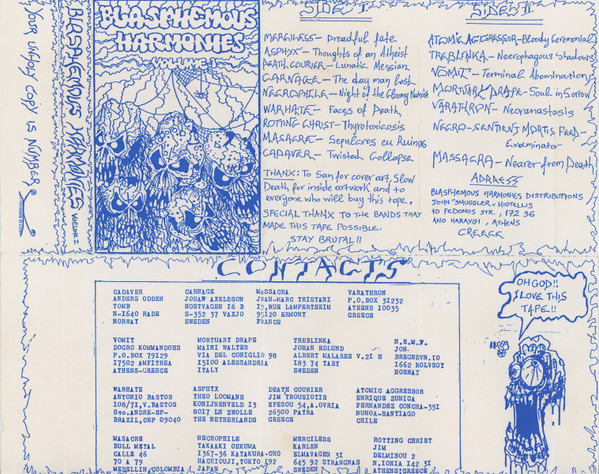 YOUR UNHOLY COPY IS NUMBER:
BLASPHEMOUS HARMONIES VOLUME I
BLASPHEMOUS
HARMONIES
VOLUME I
SIDE I
MERCILESS - Dreadful fate
ASPHYX - Thoughts of an Atheist
DEATH COURIER - Lunatic Messiah
CARNAGE - The day man lost
NECROPHILE - Night of the Gloomy
WARHATE - Faces of Death
ROTTING CHRIST - Thyrotoxicosis
MASACRE - Sepulcros en Ruinas
CADAVER - Twisted Collapse
THANX: To San for cover art, Slow
Death for inside artwork and to
everyone who will buy this tape.
SPECIAL THANX TO THE BANDS THAT
MADE THIS TAPE POSSIBLE.
STAY BRUTAL!!
SIDE II
ATOMIC AGGRESSOR - Bloody Ceremonial
TREBLINKA - Necrophagous Shadows
VOMIT - Terminal Abomination
MORTUARY DRAPE - Soul in Sorrow
VARATHRON - Necranastasis
NECRO-SENTIENT MORTIS FEED -
Exterminator
MASSACRA - Nearer from Death
ADRESS
BLASPHEMOUS HARMONIES DISTRIBUTIONS
JOHN "SMUGGLER"
10 PEDONOS STR., 172 36
ANO HARAYGI, ATHENS
GREECE
CONTACTS
CADAVER CARNAGE MASSACRA VARATHRON
ANDERS ODDEN JOHAN AXELSSON JEAN-MARC TRISTANI P.O.BOX 31232
TOMB HORTVAGEN 16 B 19,RUE LAMPERTHEIM ATHENS 10035
N-1640 RADE S-352 37 VAXJO 95120 ERMONT GREECE
NORWAY SWEDEN FRANCE
VOMIT MORTUARI DRAPE TREBLINKA N.S.M.F.
DOGRO KOMMANDORS WALTER JOHAN EDLUND JON.
P.O.BOX 79129 VIA DEL CONIGLIO 98 ALBERT MALARES V.21 B BREGNEVN.10
17502 AMFITHEA 15100 ALESSANDRIA 183 74 TABY 1662 ROLVSOY
ATHENS-GREECE ITALY SWEDEN NORWAY
WARHATE ASPHYX DEATH COURIER ATOMIC AGGRESSOR
ANTONIO BASTOS THEO LOOMANS JIM TROUSIOTIS ENRIQUE ZUNIGA
106/71,V.BASTOS KONIJNENVELD 13 EFESOU 54,A.OVRIA FERNANDEZ CONCHA-351
Sto.ANDRE-SP- 8017 LN ZWOLLE 26500 PATRA NUNOA-SANTIAGO
BRAZIL,CEP 09040 THE NETHERLANDS GREECE CHILE
MASACRE NECROPHILE MERCILESS ROTTING CHRIST
BULL METAL TAKAAKI OHKUMA KARLEN JIM
CALLE 46 1367-36 KATAKURA-CHO ELMAVAGEN 31 DELMISOU 2
70 A 79 HACHIOUJI,TOKYO 192 645 92 STRANGNAS N.IONIA 142 31
MEDELLIN,COLOMBIA JAPAN SWEDEN ATHENS GREECE
OH GOD!!
I LOVE THIS
TAPE!!